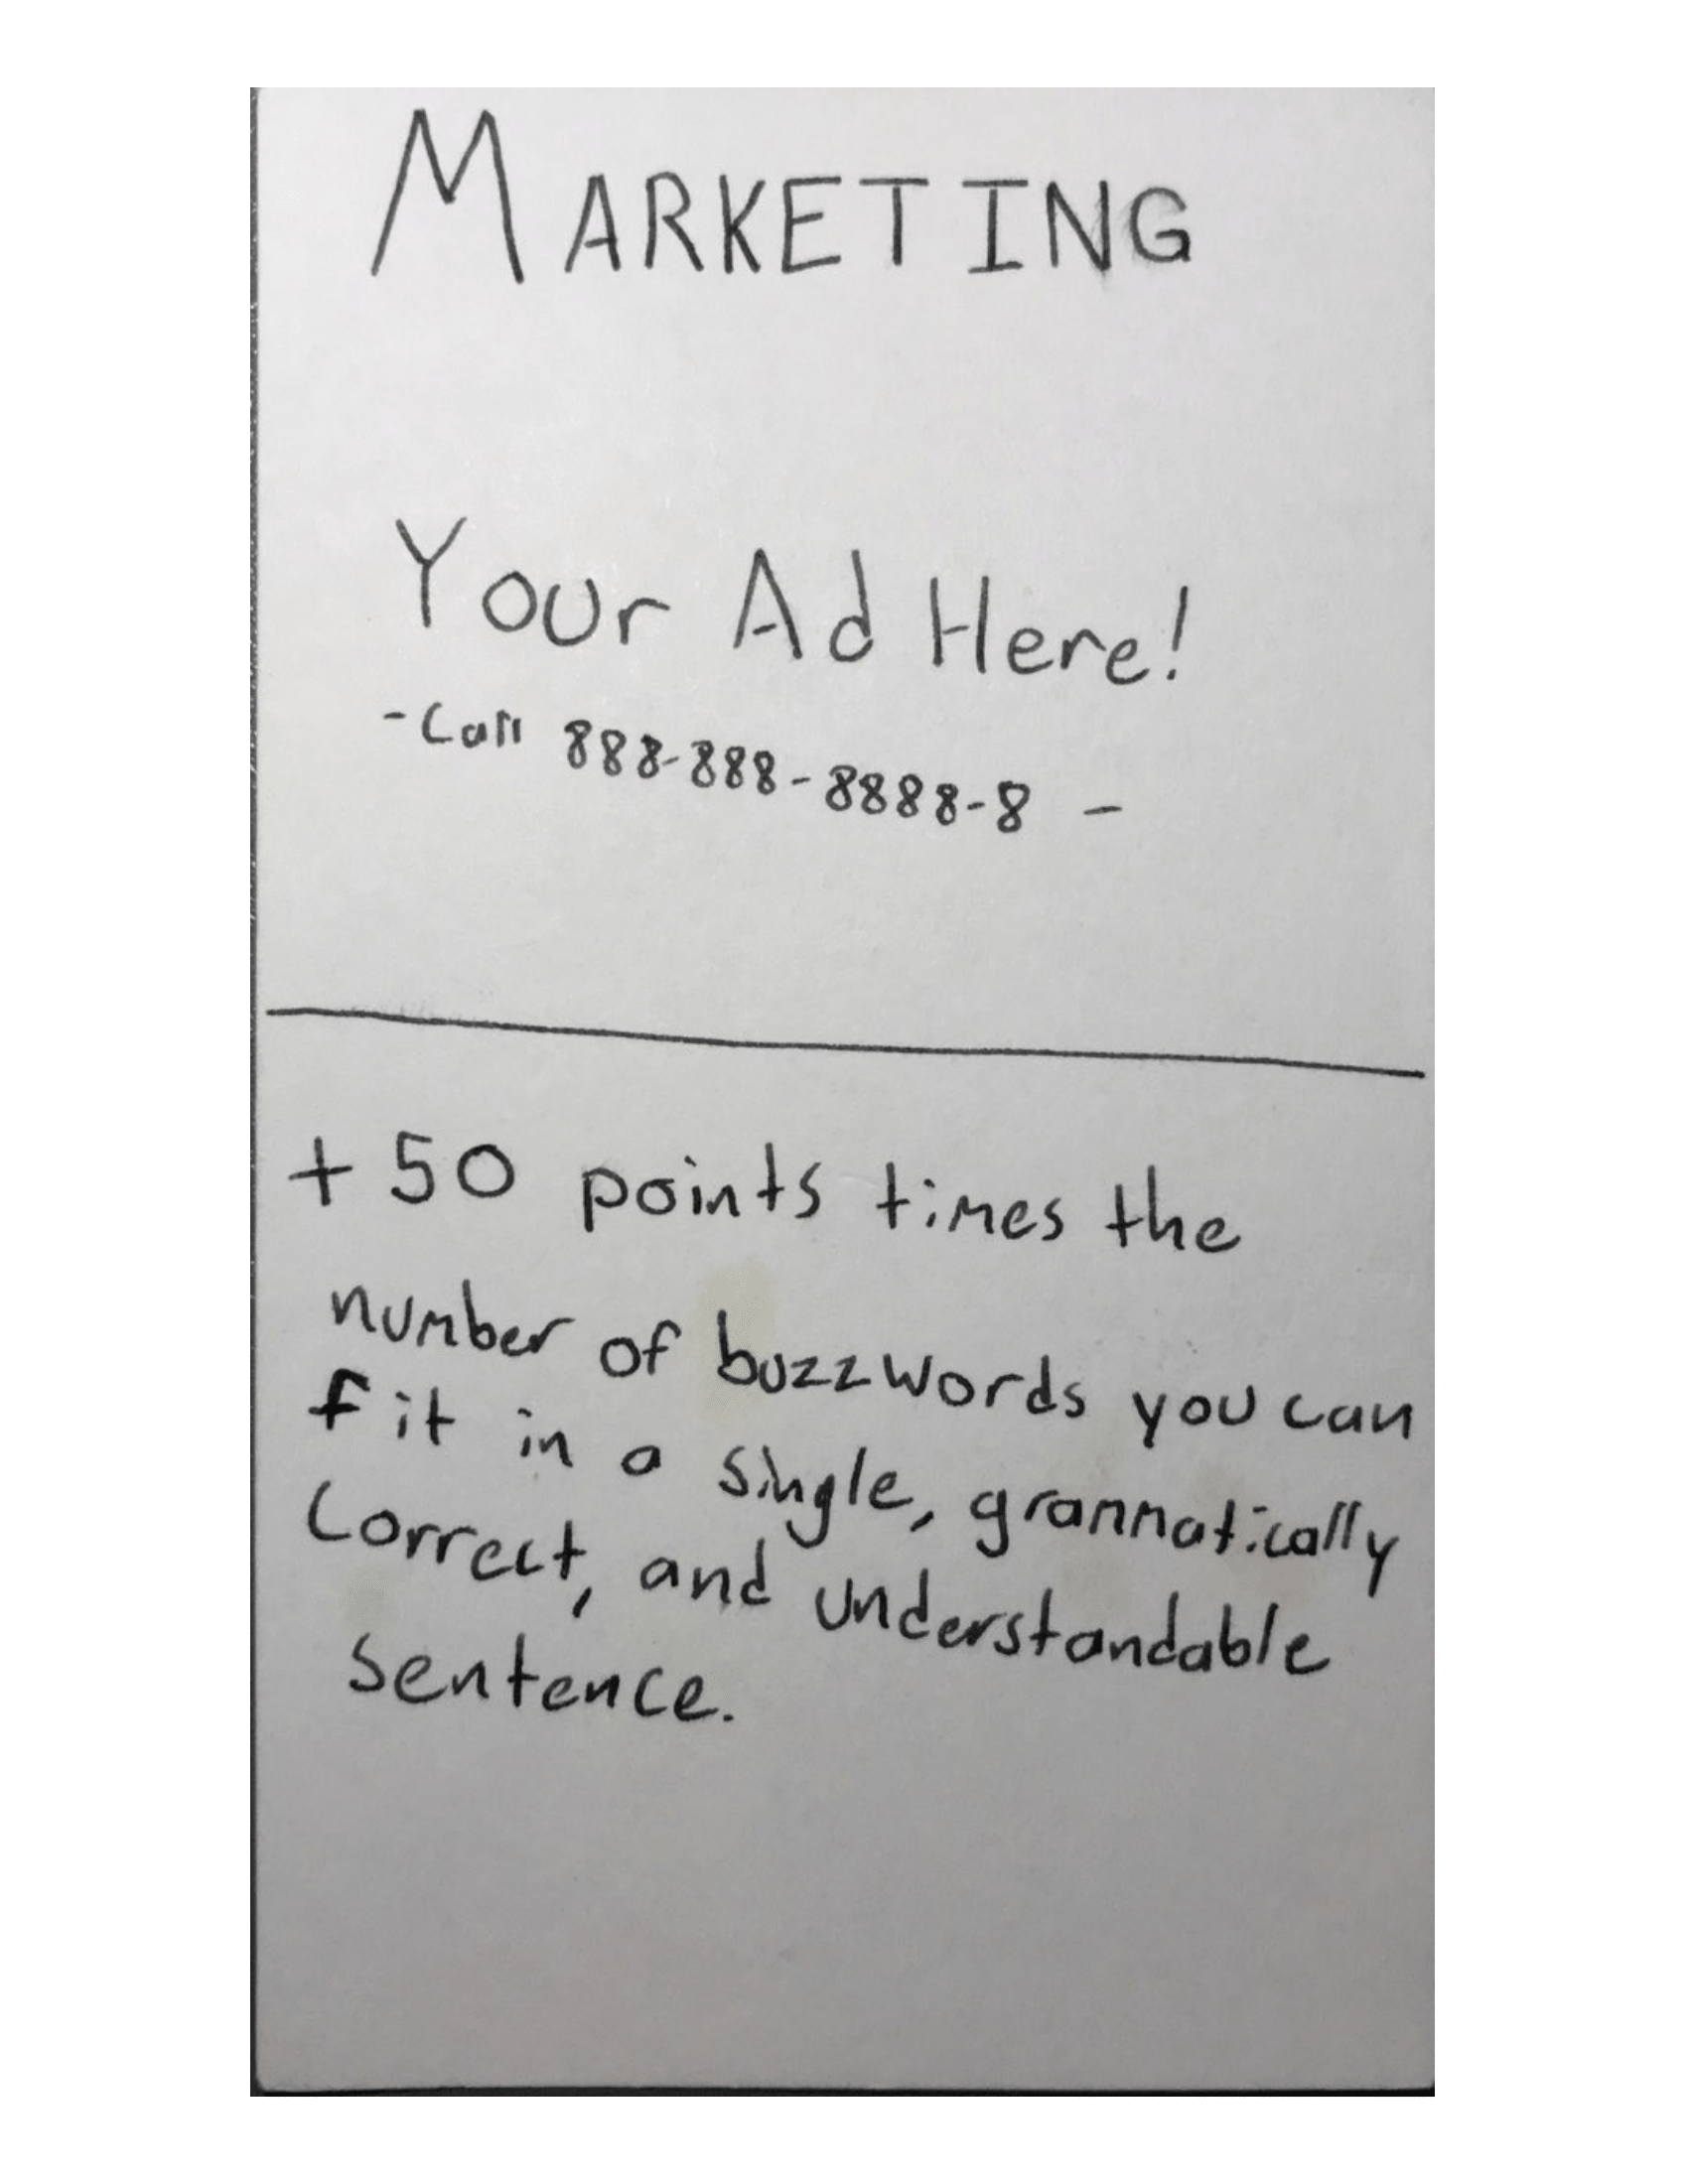 MARKETING
Your Ad Here!
-Call 888-888-8888-8 -
+ 50 points times the
number of buzzwords you can
fit in a single, grammatically
Correct, and understandable
sentence.